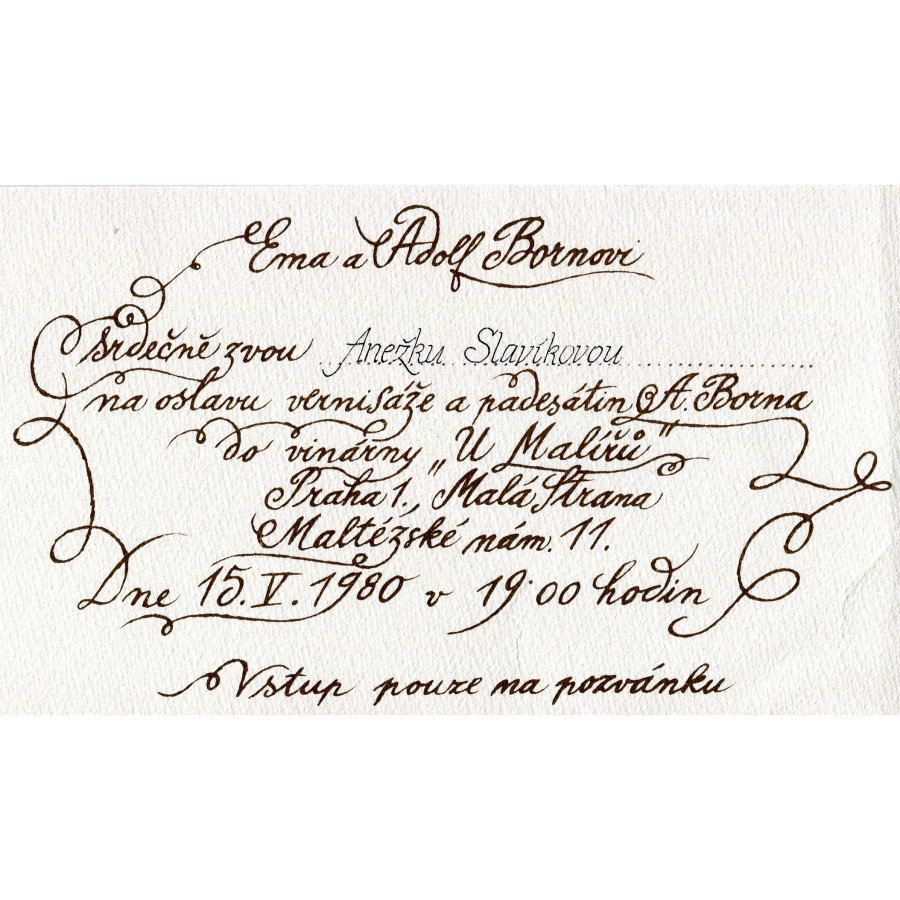 Ema a Adolf Bornovi
srdečně zvou Anežku Slavíkovou
na oslavu vernisáže a padesátin A. Borna
do vinárny „U Malířů"
Praha 1., Malá Strana
Maltézské nám. 11.
Dne 15. V. 1980 v 19.00 hodin
Vstup pouze na pozvánku